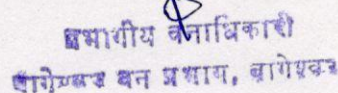 प्रभागीय वनाधिकारी
बागेश्वर वन प्रभाग, बागेश्वर